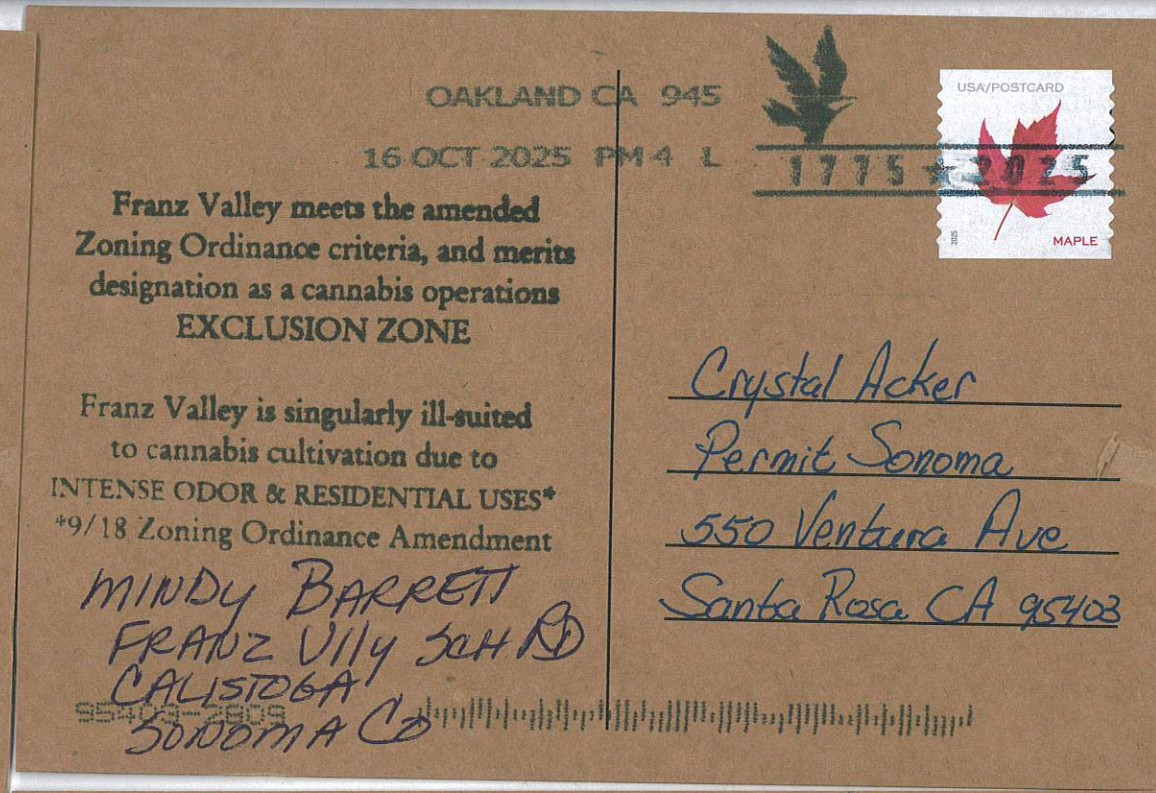 OAKLAND CA 945
16 OCT 2025 PM 4 L
1775 ★ 2025
USA/POSTCARD
2025
MAPLE
Franz Valley meets the amended
Zoning Ordinance criteria, and merits
designation as a cannabis operations
EXCLUSION ZONE
Franz Valley is singularly ill-suited
to cannabis cultivation due to
INTENSE ODOR & RESIDENTIAL USES*
*9/18 Zoning Ordinance Amendment
MINDY BARRETT
FRANZ Vlly SCH RD
CALISTOGA
SONOMA Co
95403-2809
Crystal Acker
Permit Sonoma
550 Ventura Ave
Santa Rosa CA 95403